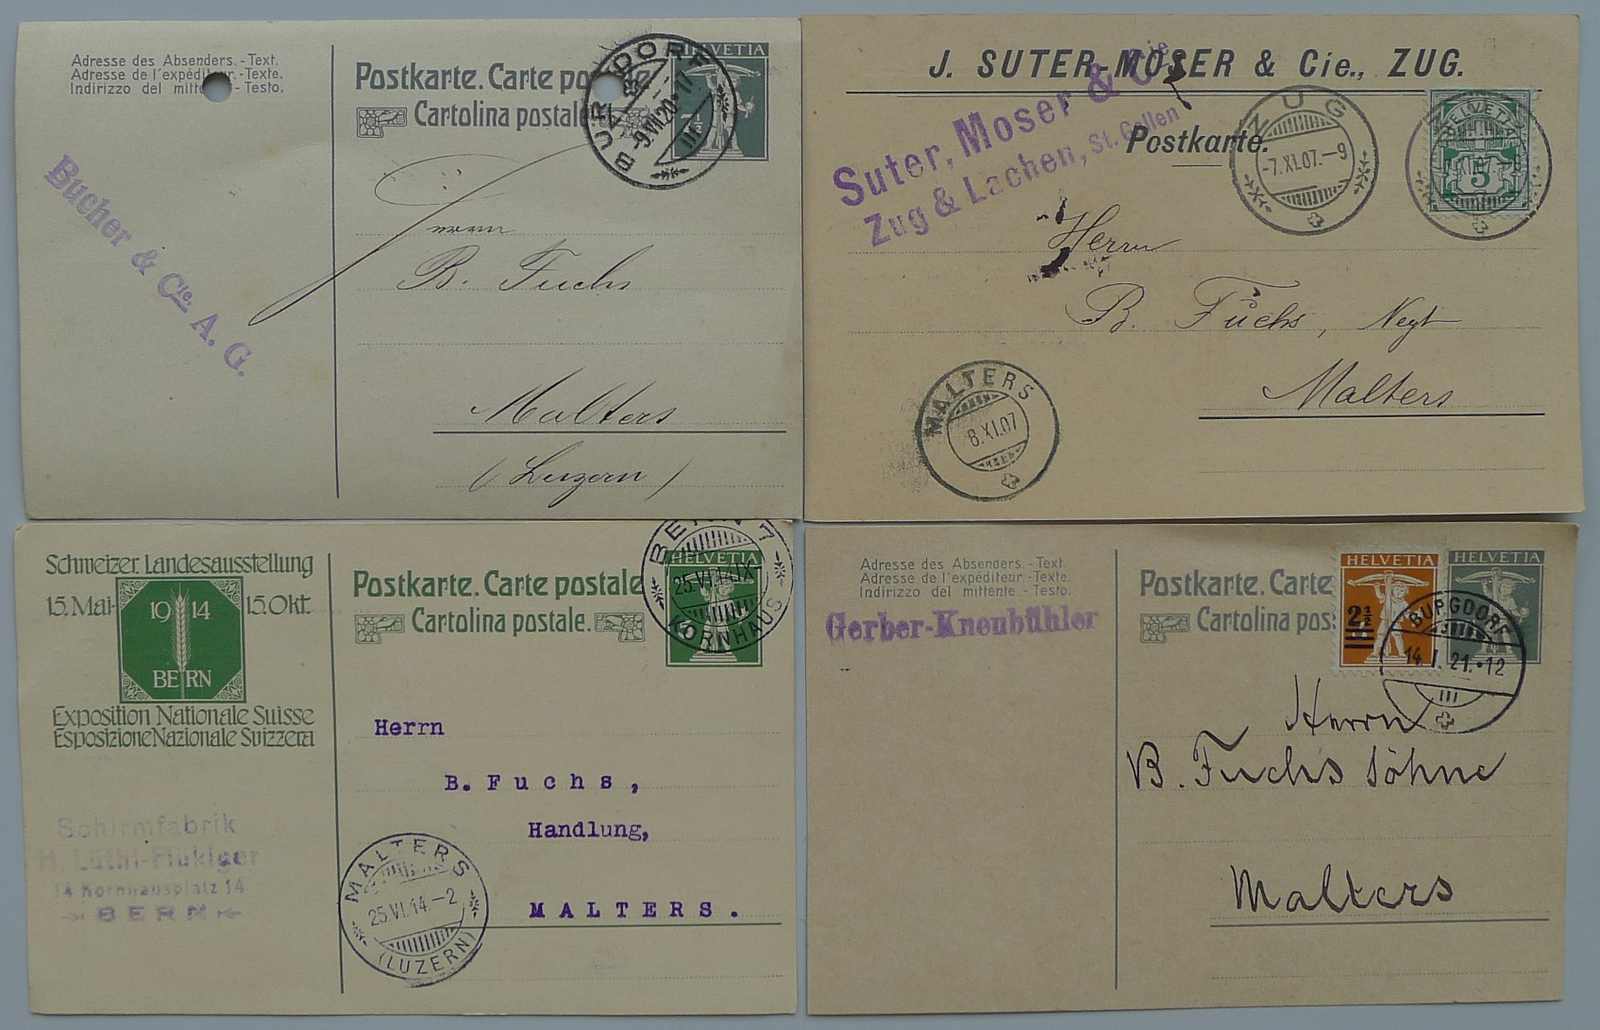 Adresse des Absenders.-Text.
Adresse de l'expéditeur.-Texte.
Indirizzo del mittente.-Testo.
Postkarte. Carte postale
Cartolina postale.
HELVETIA
7½
BURGDORF
-9.VII.20.-17
III
Bucher & Cie. A. G.
Herrn
B. Fuchs
Malters
(Luzern)
J. SUTER-MOSER & Cie., ZUG.
Postkarte.
Suter, Moser & Cie
Zug & Lachen, St. Gallen
ZUG
-7.XI.07.-9
HELVETIA
5
Herrn
B. Fuchs, Negt
Malters
MALTERS
8.XI.07
Schweizer. Landesausstellung
15. Mai- 1914 15. Okt.
BERN
Exposition Nationale Suisse
Esposizione Nazionale Svizzera
Postkarte. Carte postale
Cartolina postale.
HELVETIA
BERN 7
25.VI.14.IX
KORNHAUS
Herrn
B. Fuchs,
Handlung,
MALTERS.
Schirmfabrik
H. Lüthi-Flükiger
14 Kornhausplatz 14
BERN
MALTERS
25.VI.14.-2
(LUZERN)
Adresse des Absenders.-Text.
Adresse de l'expéditeur.-Texte.
Indirizzo del mittente.-Testo.
Gerber-Kneubühler
Postkarte. Carte
Cartolina pos
HELVETIA
2½
HELVETIA
BURGDORF
14.I.21.-12
III
Herrn
B. Fuchs Söhne
Malters